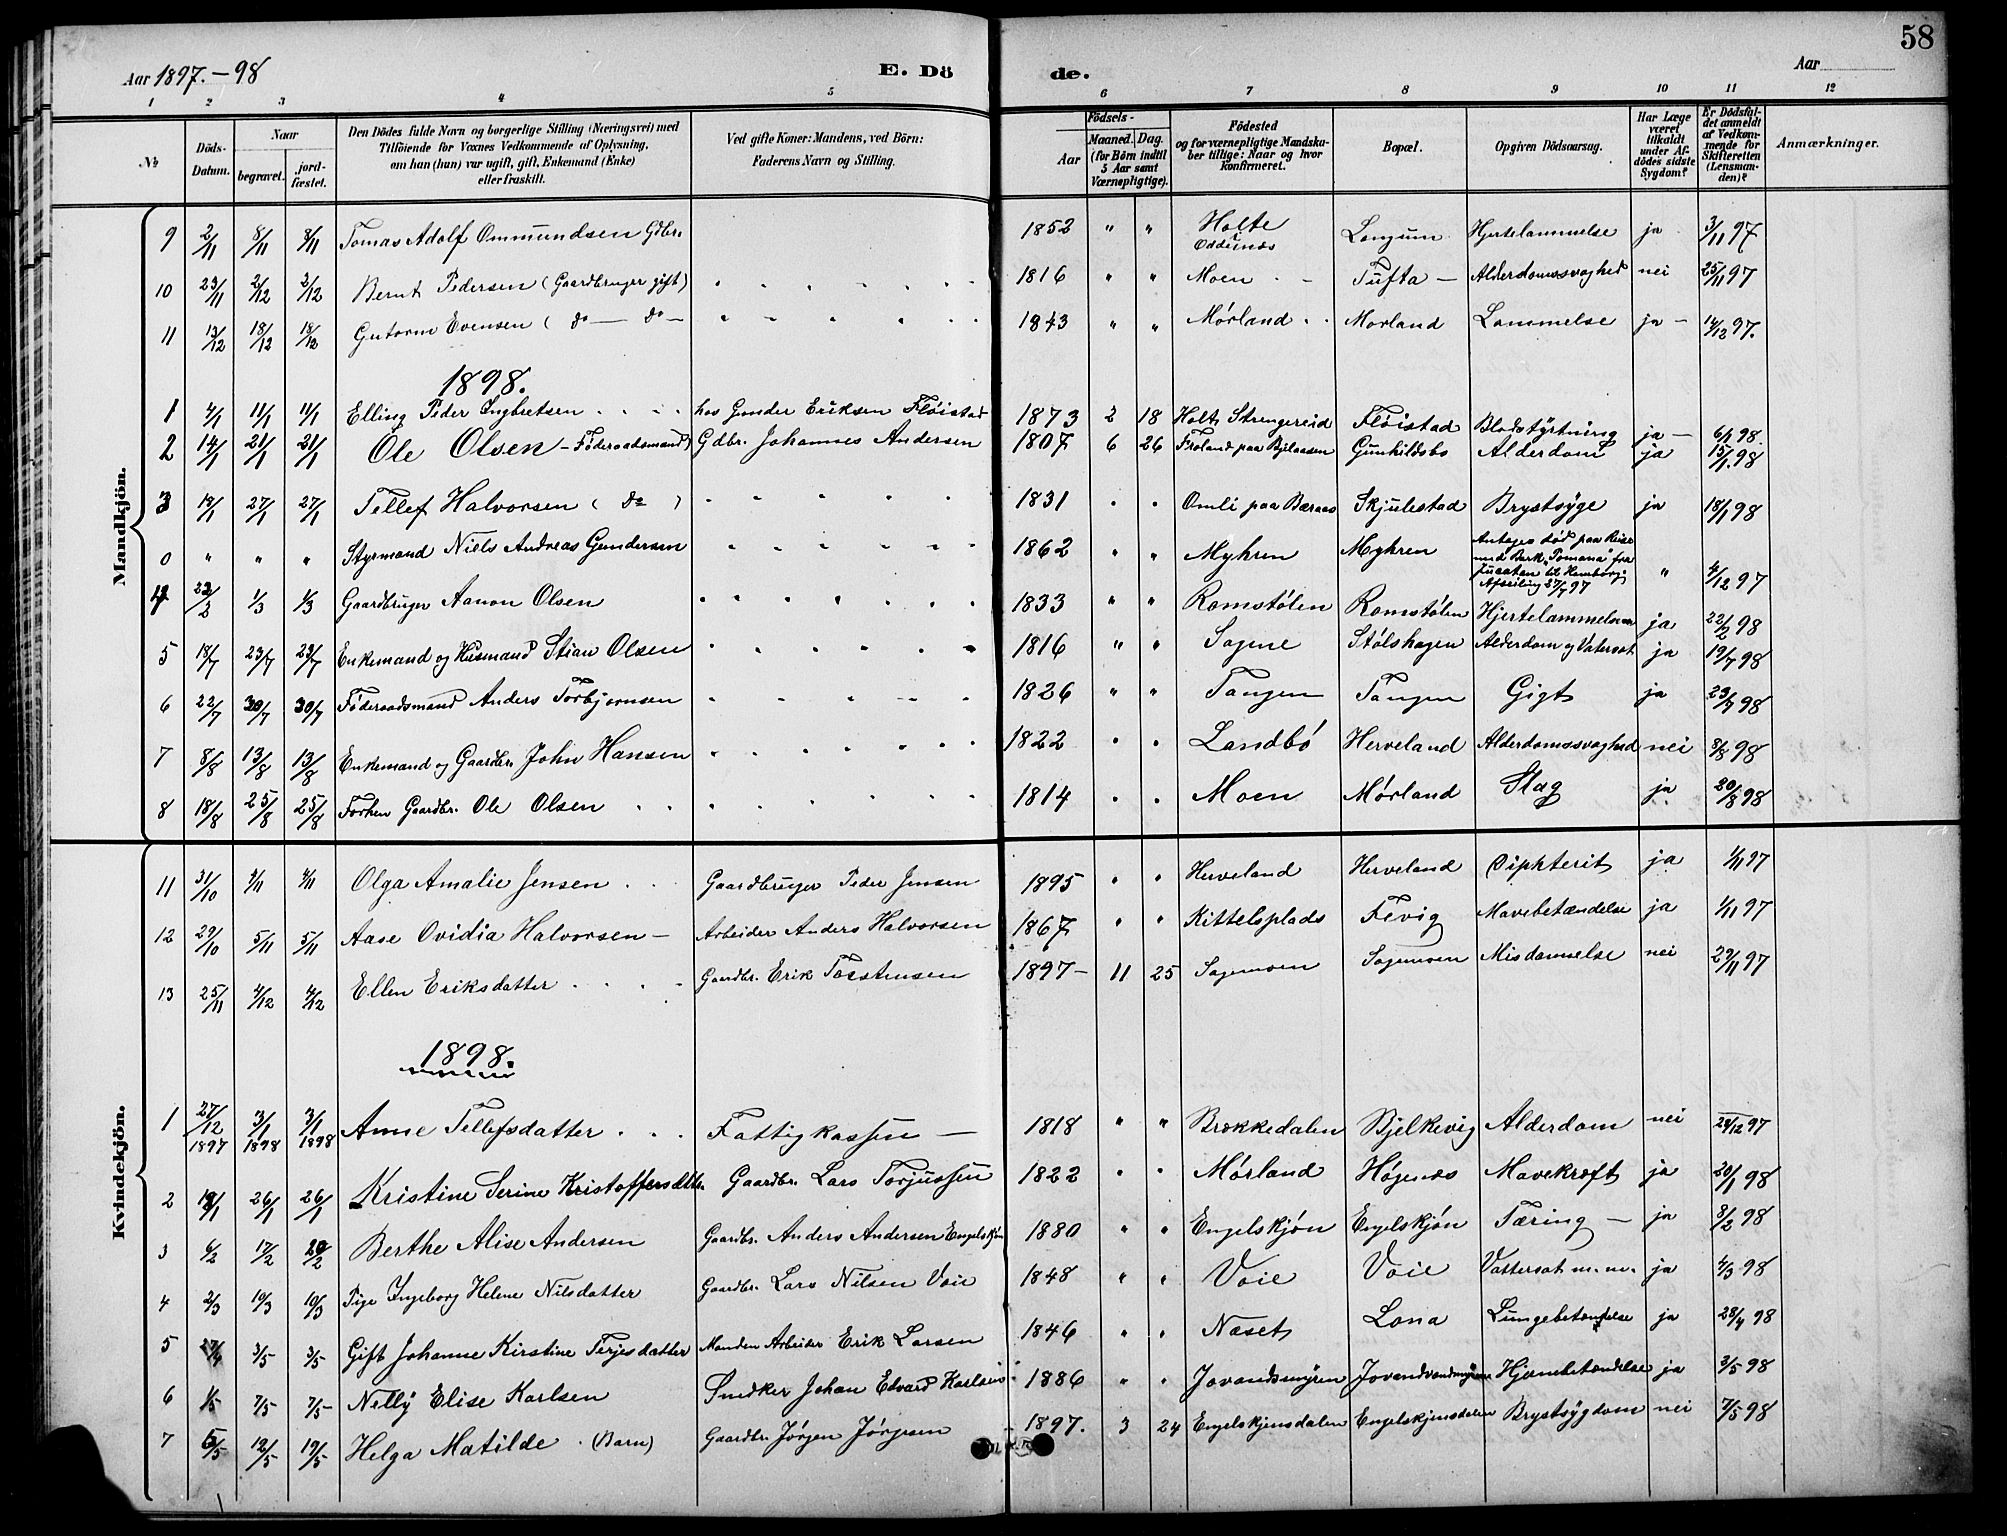 58
Aar 1897.-98 E. Dö de. Aar
1 2 3 4 5 6 7 8 9 10 11 12
No. Döds-Datum. Naar begravet. jord-fæstet. Den Dödes fulde Navn og borgerlige Stilling (Næringsvei) med Tilföiende for Voxnes Vedkommende af Oplysning, om han (hun) var ugift, gift, Enkemand (Enke) eller fraskilt. Ved gifte Koner: Mandens, ved Börn: Faderens Navn og Stilling. Födsels- Aar Maaned. Dag. (for Börn indtil 5 Aar samt Værnepligtige). Födested og for værnepligtige Mandska-ber tillige: Naar og hvor konfirmeret. Bopæl. Opgiven Dödsaarsag. Har Læge været tilkaldt under Af-dödes sidste Sygdom? Er Dödsfal-det anmeldt af Vedkom-mende for Skifteretten (Lensman-den)? Anmærkninger.
Mandkjön.
9 2/11 8/11 8/11 Tomas Adolf Ommundsen Gdbr. 1852 " " Holte Oddernæs Longum Hjertelammelse ja 3/11 97
10 23/11 2/12 2/12 Bernt Pedersen (Gaardbruger gift) 1816 " " Moen Tufta Alderdomssvaghed nei 25/11 97
11 13/12 18/12 18/12 Gutorm Evensen ( do — do 1843 " " Mørland Morland Lammelse ja 14/12 97.
1898.
1 4/1 11/1 11/1 Elling Peder Ingbretsen hos Gunder Eriksen Fløistad 1873 2 18 Holt Strengereid Fløistad Blodstyrtning ja 6/1 98.
2 14/1 21/1 21/1 Ole Olsen - Føderaadsmand) Gdbr. Johannes Andersen 1807 6 26 Froland paa Bjelaasen Gunhildsbo Alderdom ja 15/1 98
3 18/1 27/1 27/1 Tellef Halvorsen ( do ) 1831 Omli paa Baraas Skjulestad Brystsyge ja 18/1 98
0 " " " Styrmand Niels Andreas Gundersen 1862 " " Myhren Myhren Antages død paa Reise med Bark "Pomana" fra Jucatan til Hamborg. Afseiling 27/7 97 " 4/12 97
4 22/2 1/3 1/3 Gaardbruger Aanon Olsen 1833 " " Romstølen Romstølen Hjertelammelse ja 22/2 98
5 18/7 23/7 23/7 Enkemand og Husmand Stian Olsen 1816 " " Sagene Stølshagen Alderdom og Vatersot ja 19/7 98
6 22/7 30/7 30/7 Føderaadsmand Anders Torbjørnsen 1826 " " Tangen Tangen Gigt ja 23/7 98
7 8/8 13/8 13/8 Enkemand og Gaardbr. John Hansen 1822 Landbø Herveland Alderdomssvaghed nei 8/8 98
8 18/8 25/8 25/8 Forhen Gaardbr. Ole Olsen 1814 Moen Mørland Slag ja 20/8 98
Kvindekjön.
11 31/10 4/11 4/11 Olga Amalie Jensen Gaardbruger Peder Jensen 1895 Herveland Herveland Diphterit ja 1/11 97
12 29/10 5/11 5/11 Aase Ovidia Halvorsen Arbeider Anders Halvorsen 1867 Kittelsplads Fevig Mavebetændelse ja 1/11 97
13 25/11 4/12 4/12 Ellen Eriksdatter Gaardbr. Erik Torstensen 1897 11 25 Sagemoen Sagemoen Misdannelse nei 29/11 97
1898.
1 27/12 1897 3/1 1898 3/1 1898 Anne Tellefsdatter Fattigkassen 1818 " " Brekkedalen Bjelkevig Alderdom nei 29/12 97
2 18/1 26/1 26/1 Kristine Serine Kristoffersdttr. Gaardbr. Lars Torjussen 1822 Mørland Høgenæs Mavekræft ja 20/1 98
3 6/2 17/2 20/2 Berthe Alise Andersen Gaardbr. Anders Andersen Engelskjøn 1880 " " Engelskjøn Engelskjøn Tæring ja 8/2 98
4 2/3 10/3 10/3 Pige Ingeborg Helene Nilsdatter Gaardbr. Lars Nilsen Voie 1848 " " Voie Voie Vattersot m.m. ja 4/3 98
5 27/4 3/5 3/5 Gift Johanne Kirstine Terjesdatter Manden Arbeider Erik Larsen 1846 " " Næset Lona Lungebetændelse ja 28/4 98
6 1/5 7/5 7/5 Nelly Elise Karlsen Snedker Johan Edvard Karlsen 1886 " " Jovandsmyren Jovandvandmyren Hjernebetændelse ja 3/5 98
7 5/5 12/5 19/5 Helga Matilde (Barn) Gaardbr. Jørgen Jørgesen 1897. 3 24 Engelskjønsdalen Engelskjønsdalen Brystsygdom nei 7/5 98